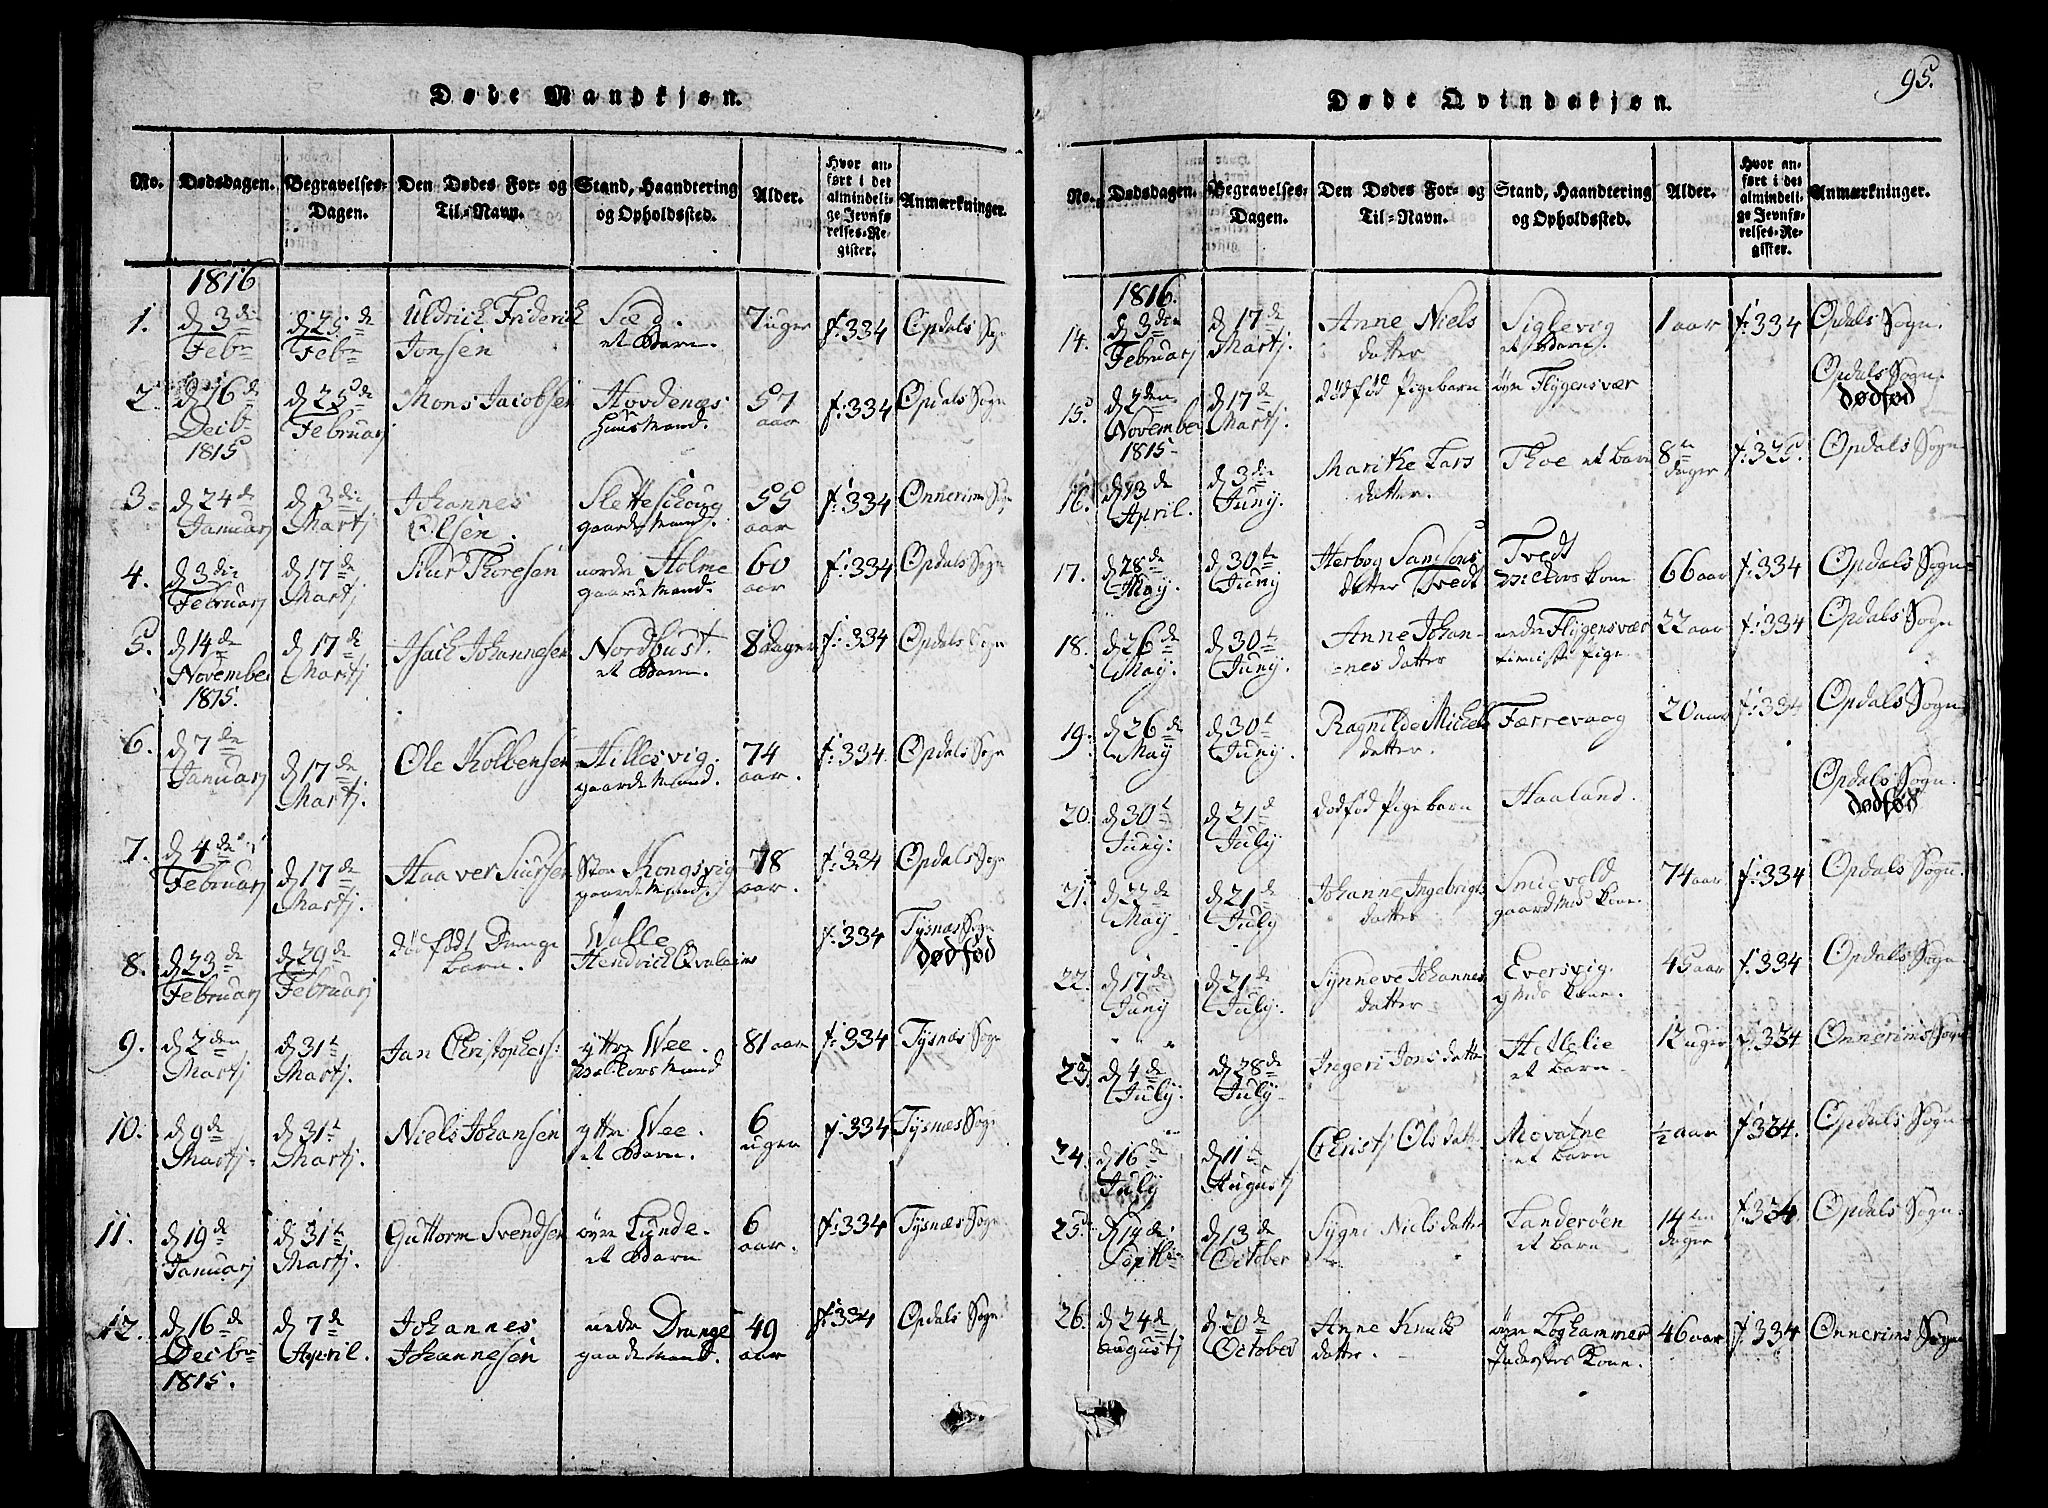 95.
Døde Mandkjøn.
No. Dødsdagen. Begravelses-Dagen. Den Dødes For- og Til-Navn. Stand, Haandtering og Opholdssted. Alder. Hvor anført i det almindelige Jevnførelses-Register. Anmærkninger.
1816
1. d 3die Febr d 25de Febr Uldrich Friderich Jonsen Sæd. et Barn. 7 uger f: 334 Opdals Sogn
2. d 16de Decbr 1815 d 25de Februarj Mons Jacobsen Hovdenæs Huusmand. 57 aar f: 334 Opdals Sogn
3. d 24de Januarj d 3die Martj Johannes Olsen. Sletteschoug gaardsmand. 55 aar f: 334 Onnerims Sogn
4. d 3die Februarj d 17de Martj. Siur Thoresen nordre Holme gaardsmand. 60 aar f: 334 Opdals Sogn
5. d 14de November 1815. d 17de Martj Isach Johannesen Nordbust. et Barn. 8 dager f: 334 Opdals Sogn
6. d 7de Januarj d 17de Martj. Ole Kolbensen Hillesvig. gaardsmand. 74 aar. f: 334. Opdals Sogn
7. d 4de Februarj d 17de Martj. Haaver Siursen Store Kongsvig gaardsmand. 78 aar. f: 334 Opdals Sogn
8. d 23de Februarj d 29de Februarj dødfødt Drenge barn. Walle Hendrich f: 334 Tysnæs Sogn dødfød
9. d 2den Martj d 31te Martj. Jan Christophers: yttre Wee. mand 81 aar f: 334 Tysnæs Sogn
10. d 9de Martj. d 31te Martj. Niels Johansen yttre Wee. et Barn. 6 uger f: 334 Tysnæs Sogn
11. d 19de Januarj d 31te Martj. Guttorm Svendsen øvre Lunde. et Barn 6 aar. f: 334 Tysnæs Sogn
12. d 16de Decbr 1815. d 7de April. Johannes Johannesen nedre Drange gaardsmand. 49 aar f: 334 Opdals Sogn
Døde Qvindekjøn.
No. Dødsdagen. Begravelses-Dagen. Den Dødes For- og Til-Navn. Stand, Haandtering og Opholdssted. Alder. Hvor anført i det almindelige Jevnførelses-Register. Anmærkninger.
1816.
14. d 3die Februarj d 17de Martj. Anne Niels datter Siglevig et Barn. 1 aar f: 334 Opdals Sogn.
15. d 2den November 1815 d 17de Martj. dødfød Pigebarn øvre Flygensvær Opdals Sogn. dødfød
16. d 13de April. d 3die Juny. Marithe Lars datter. Thoe et barn 8te dager f: 325. Opdals Sogn
17. d 28de May. d 30te Juny Herbog Samsons datter Tvedt Tvedt kone 66 aar f: 334 Opdals Sogn
18. d 26de May. d 30te Juny. Anne Johannes datter nedre Flygensvær tieniste pige. 22 aar f: 334 Opdals Sogn
19. d 26de May d 30te Juny. Ragnilde Michels datter. Færrevaag 20 aar f: 334 Opdals Sogn
20. d 30te Juny. d 21de July dodfød Pige barn Haaland. Opdals Sogn. dødfød
21. d 22de May d 21de July Johanne Ingebrigts datter Smievold gaardmds kone. 74 aar f: 334 Opdals Sogn.
22. d 17de Juny d 21de July. Synneve Johannes datter Eversvig. kone. 45 aar f. 334 Opdals Sogn.
23. d 4de July. d 28de July. Ingeri Jons datter Hetlelie et barn 12 uger f. 334 Onnerims Sogn
24. d 16de July d 11te Augustj Christj Ols datter et barn ½ aar f 334. Opdals Sogn
25. d 19de Septbr d 13de October Sygni Niels datter Landerøen et barn 14ten dager f. 334. Opdals Sogn.
26. d 24de augustj d 20de October Anne Knuds datter. øvre Løghammer kone. 46 aar f: 334 Onnerims Sogn